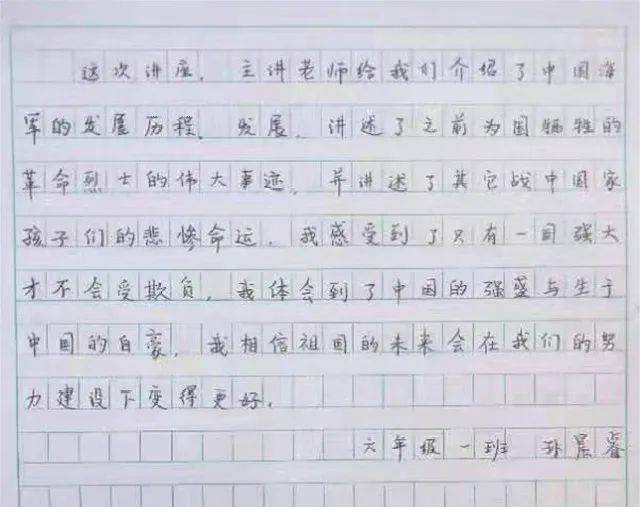 这次讲座,主讲老师给我们介绍了中国海
军的发展历程、发展、讲述了之前为国牺牲的
革命烈士的伟大事迹,并讲述了其它战中国家
孩子们的悲惨命运,我感受到了只有一国强大
才不会受欺负,我体会到了中国的强盛与生于
中国的自豪,我相信祖国的未来会在我们的努
力建设下变得更好。
六年级一班 孙晨睿